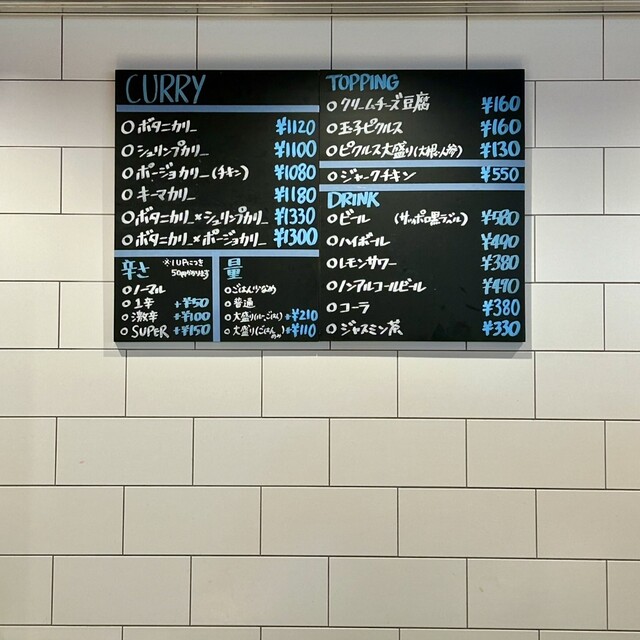 CURRY
○ボタニカリー ¥1120
○シュリンプカリー ¥1100
○ポージョカリー(チキン) ¥1080
○キーマカリー ¥1180
○ボタニカリー×シュリンプカリー ¥1330
○ボタニカリー×ポージョカリー ¥1300
辛さ ※1UPにつき
50円かかります
○ノーマル
○1辛 +¥50
○激辛 +¥100
○SUPER +¥150
量
○ごはん少なめ
○普通
○大盛り(ルーごはん) +¥210
○大盛り(ごはんのみ) +¥110
TOPPING
○クリームチーズ豆腐 ¥160
○玉子ピクルス ¥160
○ピクルス大盛り(大根、人参) ¥130
○ジャークチキン ¥550
DRINK
○ビール (サッポロ黒ラベル) ¥580
○ハイボール ¥490
○レモンサワー ¥380
○ノンアルコールビール ¥490
○コーラ ¥380
○ジャスミン茶 ¥330